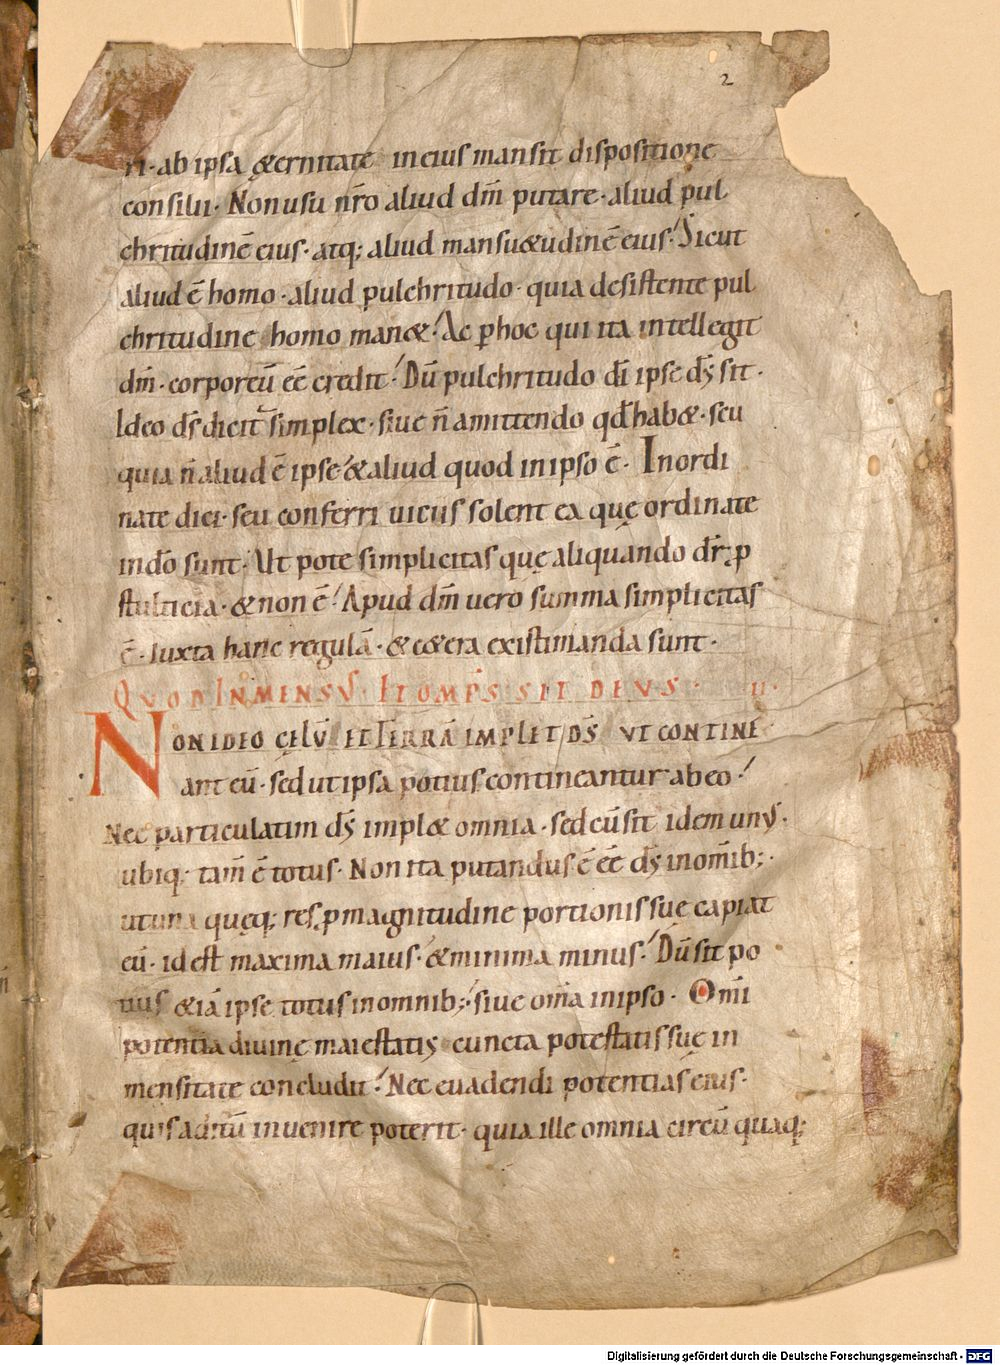 2
ri· ab ipsa &ernitate in eius mansit dispositione
consilii· Non usu nr̄o aliud dm̄ putare· aliud pul
chritudinē eius· atq; aliud mansu&udinē eius· Sicut
aliud ē homo· aliud pulchritudo· quia desistente pul
chritudine homo man&· Ac ꝑhoc qui ita intellegit
dm̄· corporeū eē credit· Dū pulchritudo dī ipse ds̄ sit·
Ideo ds̄ dicit᷑ simplex· siue n̄ amittendo qd̄ hab&· seu
quia n̄ aliud ē ipse &aliud quod in ipso ē· Inordi
nate dici· seu conferri uicus solent ea quę ordinate
in dō sunt· Ut pote simplicitas quę aliquando dr̄ ꝓ
stulticia· & non ē· Apud dm̄ uero summa simplicitas
ē· Iuxta hanc regulā· & c&era existimanda sunt·
QUOD INMENSUS ET OMPS SIT DEUS· II·
NON IDEO CĘLŪ ET TERRĀ IMPLET DS̄ UT CONTINE
ant eū· sed ut ipsa potius contineantur ab eo·
Nec particulatim ds̄ impl& omnia· sed cū sit idem unus·
ubiq; tam̄ ē totus· Non ita putandus ē eē ds̄ in om̄ib;·
ut una quęq; res ꝓ magnitudine portionis suę capiat
eū· id est maxima maius· & minima minus· Dū sit po
tius &iā ipse totus in omnib;· siue om̄a in ipso· Om̄i
potentia diuinę maiestatis cuncta potestatis suę in
mensitate concludit· Nec euadendi potentiā eius·
quis aditū inuenire poterit· quia ille omnia circū quaq;
Digitalisierung gefördert durch die Deutsche Forschungsgemeinschaft - DFG